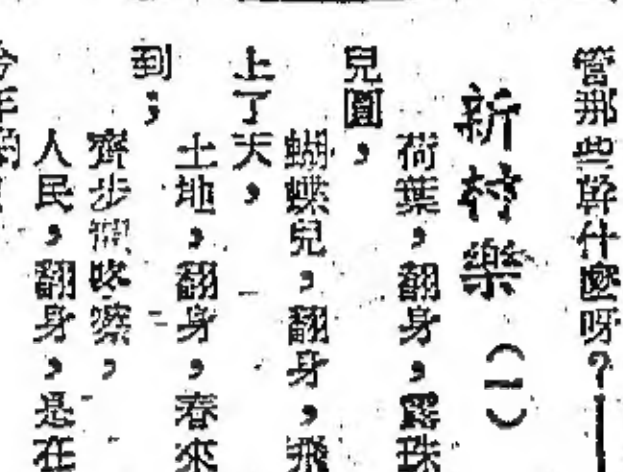 管那些幹什麼呀?——
新村樂(一)
荷葉,翻身,露珠
兒圓,
蝴蝶兒,翻身,飛
上了天,
土地,翻身,春來
到;
齊步咚嚓,
人民,翻身,是在
今年